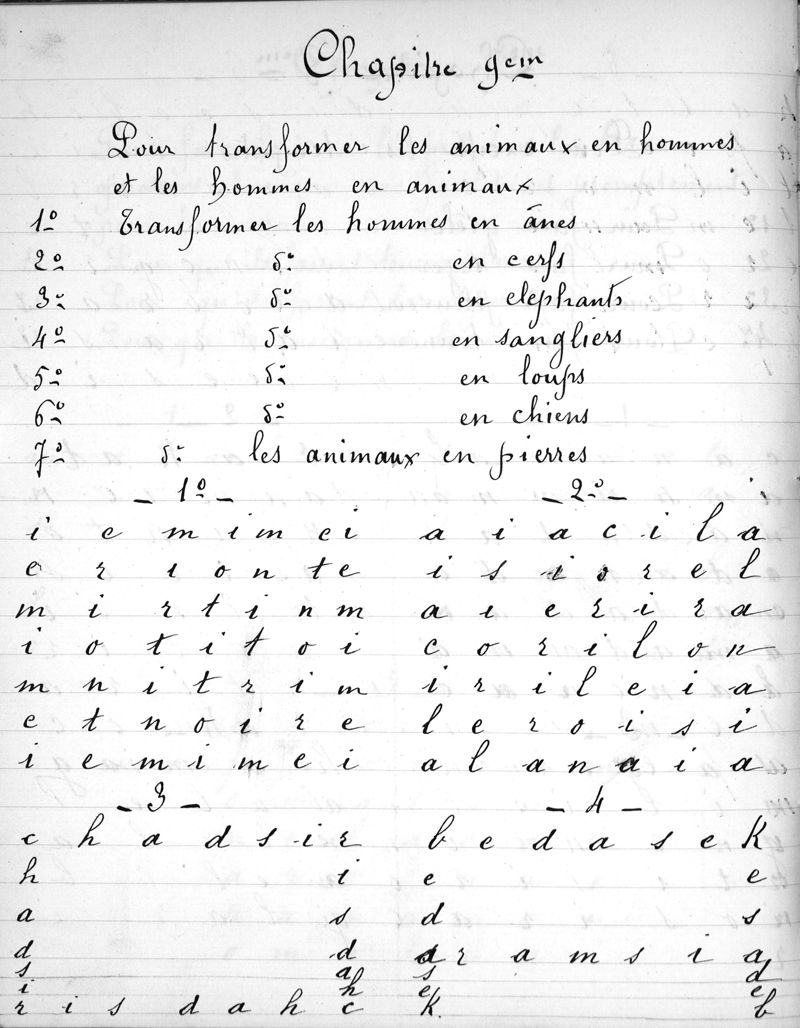 Chapitre 9em
Pour transformer les animaux en hommes
et les hommes en animaux
1º Transformer les hommes en ânes
2º dº en cerfs
3º dº en elephants
4º dº en sangliers
5º dº en loups
6º dº en chiens
7º dº les animaux en pierres
– 1º – – 2º –
i e m i m e i a i a c i l a
e r i o n t e i s i o r e l
m i r t i n m a i e r i r a
i o t i t o i c o r i l o n
m n i t r i m i r i l e i a
e t n o i r e l e r o i s i
i e m i m e i a l a n a i a
– 3 – – 4 –
c h a d s i r b e d a s e K
h i e e
a s d s
d d a r a m s i a
s a s d
i h e e
r i s d a h c K b